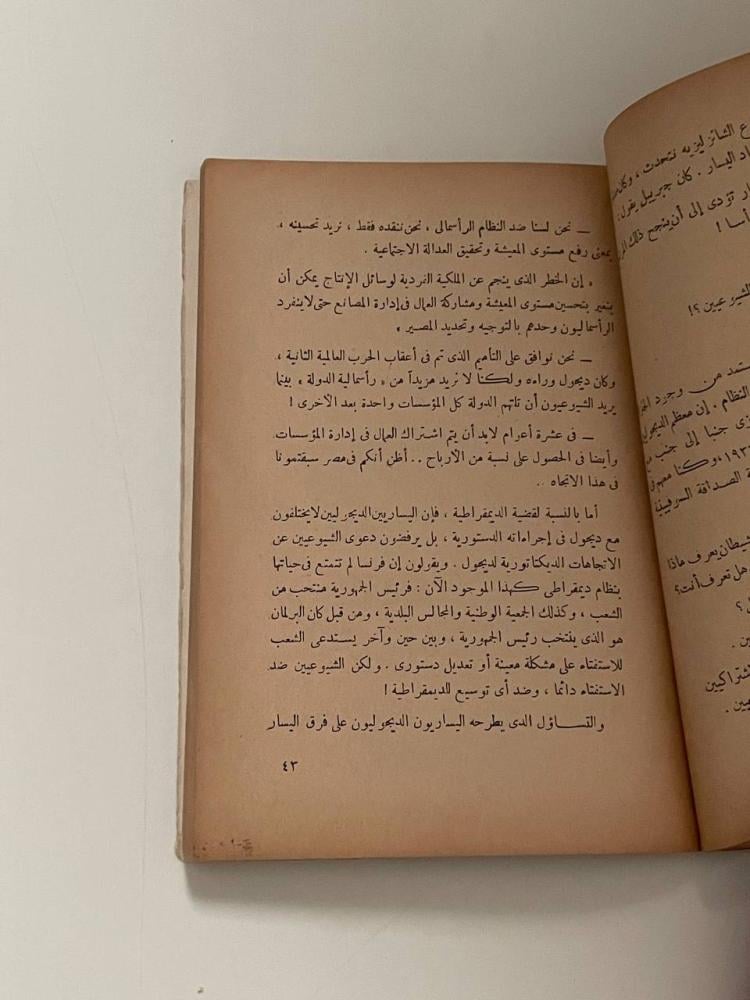 — نحن لسنا ضد النظام الرأسمالى ، نحن ننقده فقط ، نريد تحسينه ،
بمعنى رفع مستوى المعيشة وتحقيق العدالة الاجتماعية .
« إن الخطر الذى ينجم عن الملكية الفردية لوسائل الإنتاج يمكن أن
يتغير بتحسين مستوى المعيشة ومشاركة العمال فى إدارة المصانع حتى لا ينفرد
الرأسماليون وحدهم بالتوجيه وتحديد المصير »
— نحن نوافق على التأميم الذى تم فى أعقاب الحرب العالمية الثانية ،
وكان ديجول وراءه ولكننا لا نريد مزيداً من « رأسمالية الدولة » بينما
يريد الشيوعيون أن تلتهم الدولة كل المؤسسات واحدة بعد الأخرى !
— فى عشرة أعوام لابد أن يتم اشتراك العمال فى إدارة المؤسسات
وأيضا فى الحصول على نسبة من الأرباح .. أظن أنكم فى مصر سبقتمونا
فى هذا الاتجاه ..
أما بالنسبة لقضية الديمقراطية ، فإن اليساريين الديجوليين لايختلفون
مع ديجول فى إجراءاته الدستورية ، بل يرفضون دعوى الشيوعيين عن
الاتجاهات الديكتاتورية لديجول . ويقولون إن فرنسا لم تتمتع فى حياتها
بنظام ديمقراطى كهذا الموجود الآن : فرئيس الجمهورية منتخب من
الشعب ، وكذلك الجمعية الوطنية والمجالس البلدية ، ومن قبل كان البرلمان
هو الذى ينتخب رئيس الجمهورية ، وبين حين وآخر يستدعى الشعب
للاستفتاء على مشكلة معينة أو تعديل دستورى . ولكن الشيوعيين ضد
الاستفتاء دائما ، وضد أى توسيع للديمقراطية !
والتساؤل الذى يطرحه اليساريون الديجوليون على فرق اليسار
٤٣
ع الشانزليزيه نتحدث ، وكان
اليسار . كان جبرييل يقول :
تؤدى إلى أن ينجح ذلك
الشيوعيين ؟!
من وجود
النظام . إن معظم
جنبا إلى جنب
، وكنا معهم فى
الصداقة السوفيتية
يعرف ماذا
هل تعرف أنت؟
؟